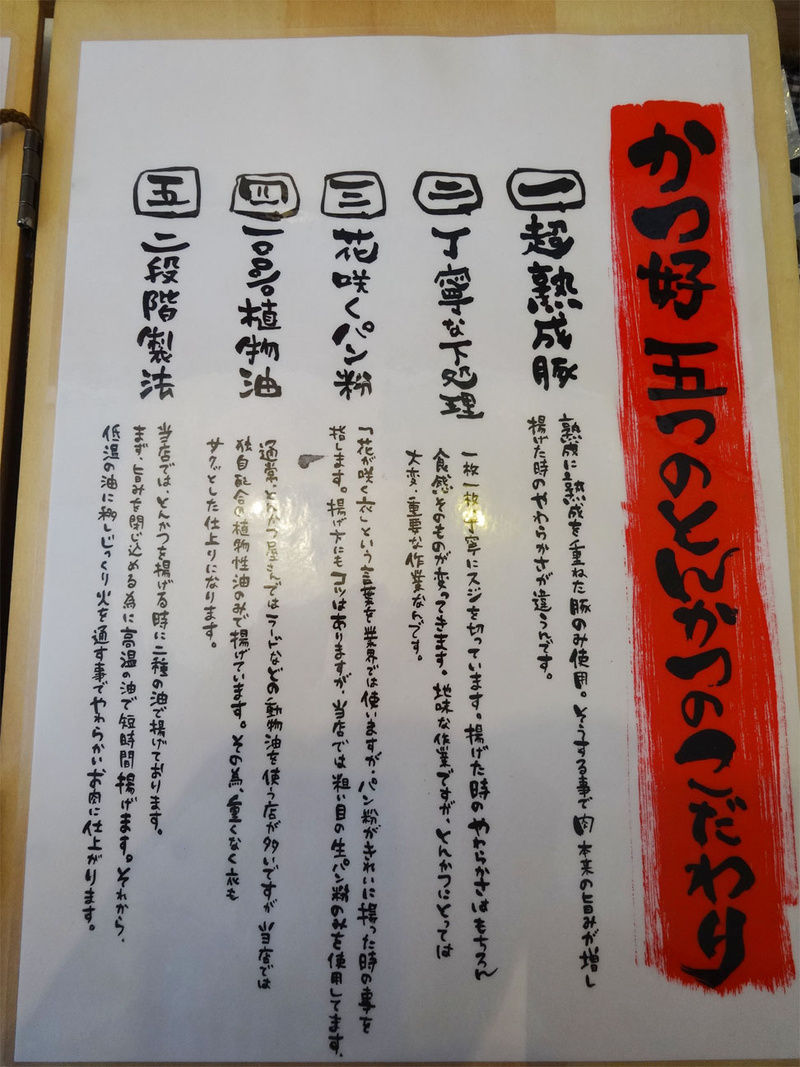 かつ好 五つのとんかつのこだわり
一 超熟成豚
熟成に熟成を重ねた豚のみ使用。そうする事で肉本来の旨みが増し
揚げた時のやわらかさが違うんです。
二 丁寧な下処理
一枚一枚丁寧にスジを切っています。揚げた時のやわらかさはもちろん
食感そのものが変ってきます。地味な作業ですが、とんかつにとっては
大変重要な作業なんです。
三 花咲くパン粉
「花が咲く衣」という言葉を業界では使いますが、パン粉がきれいに揚った時の事を
指します。揚げ方にもコツはありますが、当店では粗い目の生パン粉のみを使用してます。
四 一〇〇%植物油
通常、とんかつ屋さんではラードなどの動物油を使う店が多いですが当店では
独自配合の植物性油のみで揚げています。その為、重くなく衣も
サクッとした仕上りになります。
五 二段階製法
当店では、とんかつを揚げる時に二種の油で揚げております。
まず、旨みを閉じ込める為に高温の油で短時間揚げます。それから、
低温の油に移しじっくり火を通す事でやわらかいお肉に仕上がります。